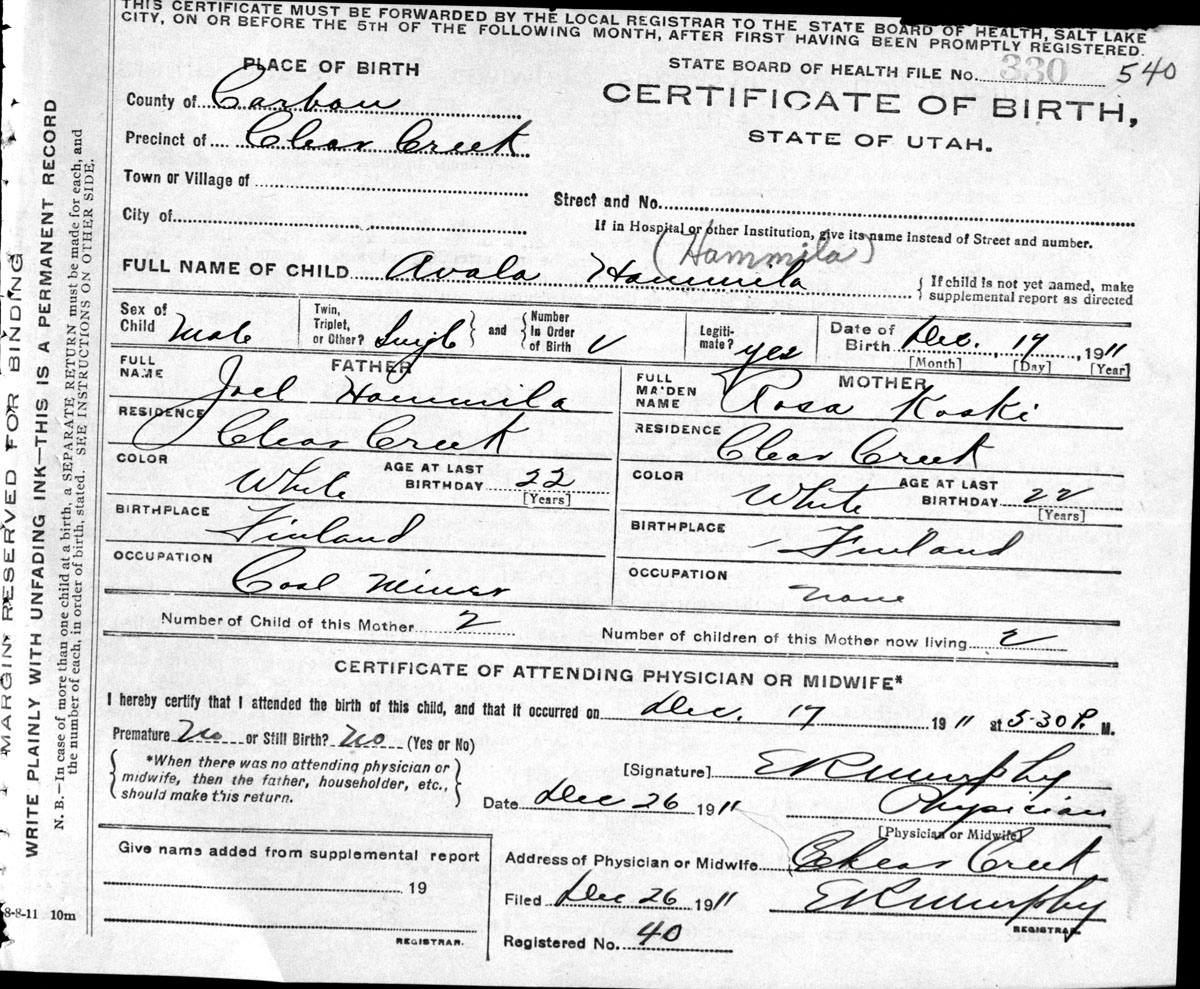 THIS CERTIFICATE MUST BE FORWARDED BY THE LOCAL REGISTRAR TO THE STATE BOARD OF HEALTH, SALT LAKE
CITY, ON OR BEFORE THE 5TH OF THE FOLLOWING MONTH, AFTER FIRST HAVING BEEN PROMPTLY REGISTERED.
PLACE OF BIRTH
STATE BOARD OF HEALTH FILE No. 330 540
County of Carbon
CERTIFICATE OF BIRTH,
Precinct of Clear Creek
STATE OF UTAH.
Town or Village of
Street and No.
City of
If in Hospital or other Institution, give its name instead of Street and number.
(Hammila)
FULL NAME OF CHILD Avala Hammila { If child is not yet named, make
supplemental report as directed
Sex of Child Male
Twin, Triplet, or Other? Single } and { Number In Order of Birth
Legiti-mate? yes
Date of Birth Dec. 17, 1911
[Month] [Day] [Year]
FATHER
FULL NAME Joel Hammila
RESIDENCE Clear Creek
COLOR White AGE AT LAST BIRTHDAY 22
[Years]
BIRTHPLACE Finland
OCCUPATION Coal Miner
MOTHER
FULL MAIDEN NAME Rosa Koski
RESIDENCE Clear Creek
COLOR White AGE AT LAST BIRTHDAY 22
[Years]
BIRTHPLACE Finland
OCCUPATION none
Number of Child of this Mother 2
Number of children of this Mother now living 2
CERTIFICATE OF ATTENDING PHYSICIAN OR MIDWIFE*
I hereby certify that I attended the birth of this child, and that it occurred on Dec. 17 1911 at 5-30 P. M.
Premature No or Still Birth? No (Yes or No)
{ *When there was no attending physician or
midwife, then the father, householder, etc.,
should make this return. }
[Signature] E R Murphy
Date Dec 26 1911 Physician
[Physician or Midwife]
Give name added from supplemental report
19
REGISTRAR.
Address of Physician or Midwife Clear Creek
Filed Dec 26 1911 E R Murphy
REGISTRAR.
Registered No. 40
8-8-11 10m
MARGIN RESERVED FOR BINDING
WRITE PLAINLY WITH UNFADING INK—THIS IS A PERMANENT RECORD
N. B.—In case of more than one child at a birth, a SEPARATE RETURN must be made for each, and
the number of each, in order of birth, stated. SEE INSTRUCTIONS ON OTHER SIDE.